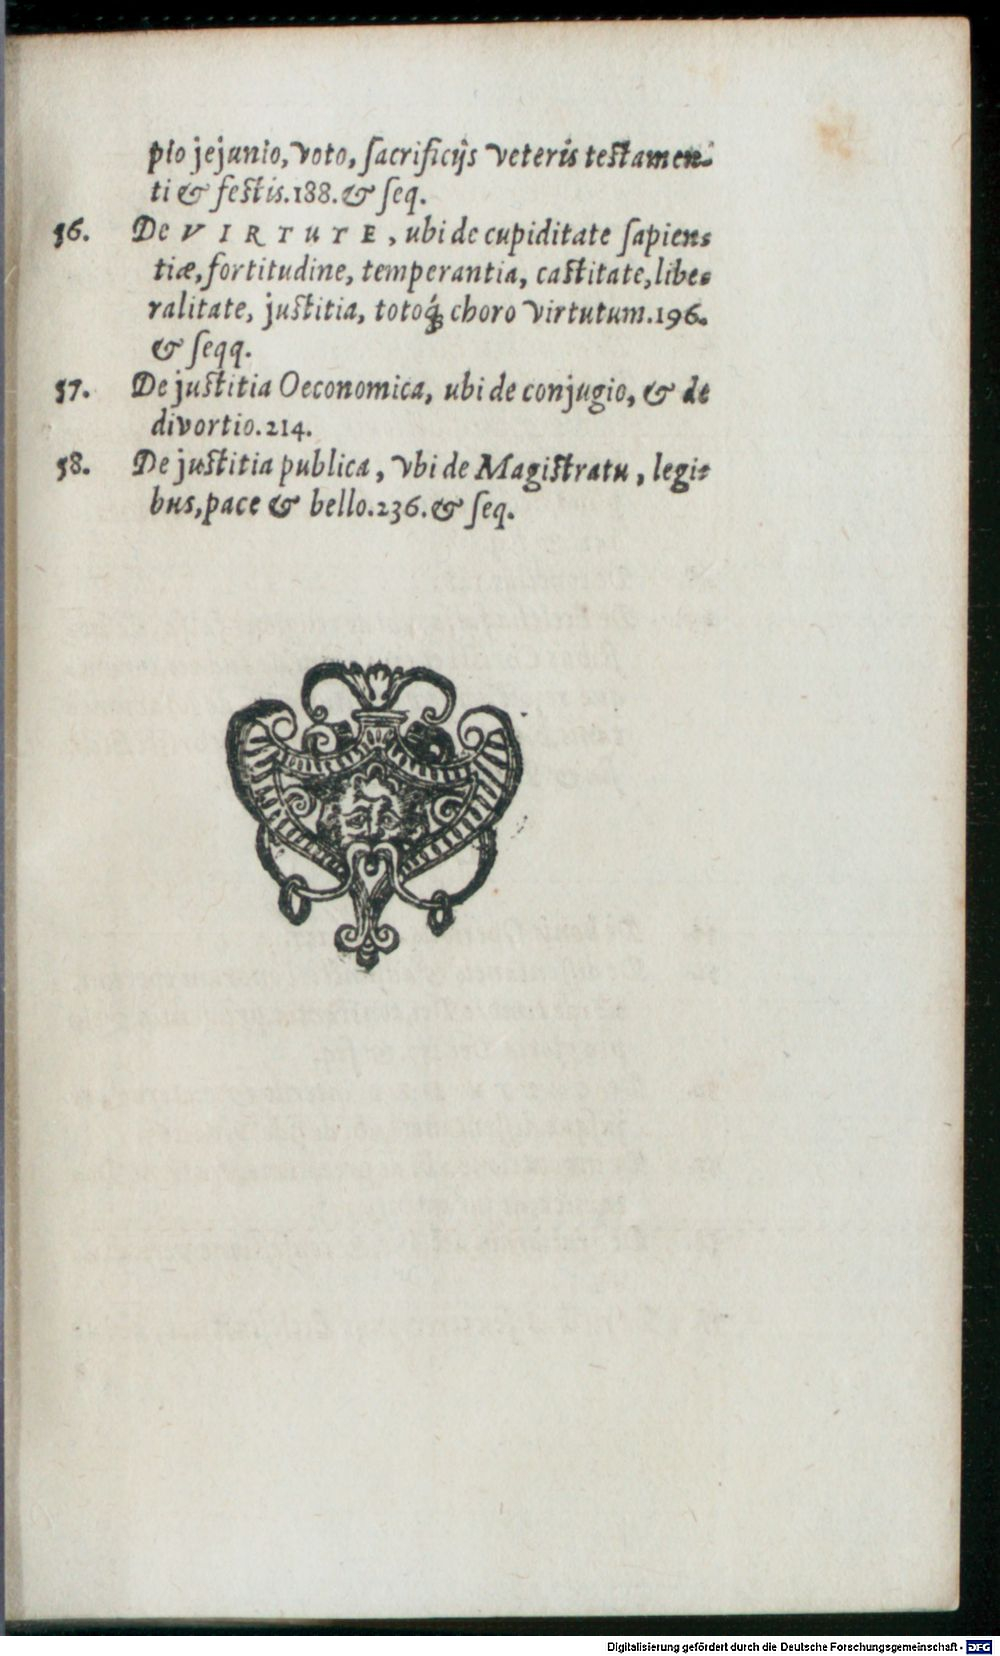 pio jejunio, voto, ſacrificijs veteris teſtamen-
ti & feſtis. 188. & ſeq.
36. De VIRTUTE, ubi de cupiditate ſapien-
tiæ, fortitudine, temperantia, caſtitate, libe-
ralitate, juſtitia, totoq́; choro virtutum. 196.
& ſeqq.
37. De juſtitia Oeconomica, ubi de conjugio, & de
divortio. 214.
38. De juſtitia publica, vbi de Magiſtratu, legi-
bus, pace & bello. 236. & ſeq.
Digitalisierung gefördert durch die Deutsche Forschungsgemeinschaft - DFG